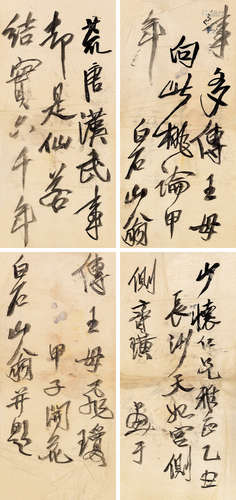 事多傳王母
向此桃論甲
年
白石山翁
荒唐漢武事
却是仙
結實六千年
少懷仁兄雅正乙丑
長沙天妃宮側
側齊璜畫于
傳王母飛瓊
甲子開花
白石山翁并題